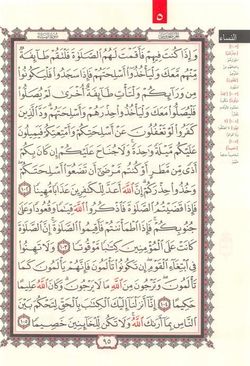 ٥
النساء
وَإِذَا كُنتَ فِيهِمْ فَأَقَمْتَ لَهُمُ الصَّلَوٰةَ فَلْتَقُمْ طَآئِفَةٌ
مِّنْهُم مَّعَكَ وَلْيَأْخُذُوٓا۟ أَسْلِحَتَهُمْ فَإِذَا سَجَدُوا۟ فَلْيَكُونُوا۟
مِن وَرَآئِكُمْ وَلْتَأْتِ طَآئِفَةٌ أُخْرَىٰ لَمْ يُصَلُّوا۟
فَلْيُصَلُّوا۟ مَعَكَ وَلْيَأْخُذُوا۟ حِذْرَهُمْ وَأَسْلِحَتَهُمْ وَدَّ الَّذِينَ
كَفَرُوا۟ لَوْ تَغْفُلُونَ عَنْ أَسْلِحَتِكُمْ وَأَمْتِعَتِكُمْ فَيَمِيلُونَ
عَلَيْكُم مَّيْلَةً وَٰحِدَةً وَلَا جُنَاحَ عَلَيْكُمْ إِن كَانَ بِكُمْ
أَذًى مِّن مَّطَرٍ أَوْ كُنتُم مَّرْضَىٰٓ أَن تَضَعُوٓا۟ أَسْلِحَتَكُمْ
وَخُذُوا۟ حِذْرَكُمْ إِنَّ اللَّهَ أَعَدَّ لِلْكَٰفِرِينَ عَذَابًا مُّهِينًا ١٠٢
فَإِذَا قَضَيْتُمُ الصَّلَوٰةَ فَاذْكُرُوا۟ اللَّهَ قِيَٰمًا وَقُعُودًا وَعَلَىٰ
جُنُوبِكُمْ فَإِذَا اطْمَأْنَنتُمْ فَأَقِيمُوا۟ الصَّلَوٰةَ إِنَّ الصَّلَوٰةَ
كَانَتْ عَلَى الْمُؤْمِنِينَ كِتَٰبًا مَّوْقُوتًا ١٠٣ وَلَا تَهِنُوا۟
فِى ابْتِغَآءِ الْقَوْمِ إِن تَكُونُوا۟ تَأْلَمُونَ فَإِنَّهُمْ يَأْلَمُونَ كَمَا
تَأْلَمُونَ وَتَرْجُونَ مِنَ اللَّهِ مَا لَا يَرْجُونَ وَكَانَ اللَّهُ عَلِيمًا
حَكِيمًا ١٠٤ إِنَّآ أَنزَلْنَآ إِلَيْكَ الْكِتَٰبَ بِالْحَقِّ لِتَحْكُمَ بَيْنَ
النَّاسِ بِمَآ أَرَىٰكَ اللَّهُ وَلَا تَكُن لِّلْخَآئِنِينَ خَصِيمًا ١٠٥
٩٥